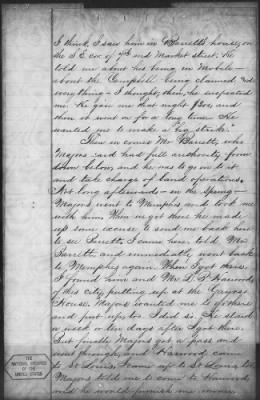 I think, I saw him in Barrett's house, on
the S.E. cor of 7th and Market street. He
told me about his being in Mobile—
about the Campbell being claimed and
everything—I thought, then, he suspected
me. He gave me that night $20, and
then sent for a long time. He
wanted me to make a "big strike."
Then in comes Mr. Barrett, who
Majors said had full authority from
down below, and he was to go in to it
and take charge of land operations.
Not long afterwards—in the spring—
Majors went to Memphis and took me
with him. When we got there he made
up some excuse to send me back here
to see Barrett. I came here, told Mr.
Barrett and immediately went back
to Memphis again. When I got there
I found him and Mr. Harwood
of this city, putting up at the Gayoso
House. Majors wanted me to go there
and put up too. I did so. He staid
a week or ten days after I got there.
But finally Majors got a pass and
went through, and Harwood came
to St Louis. I came up to St Louis too
Majors told me to come to Harwood
and he would furnish me money
THE
NATIONAL ARCHIVES
OF THE
UNITED STATES